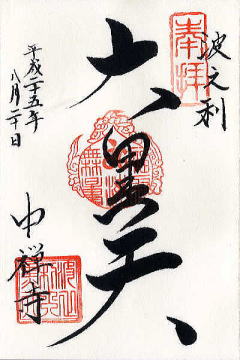 奉拝
波之利
大黒天
平成二十五年
八月二十日
中禅寺